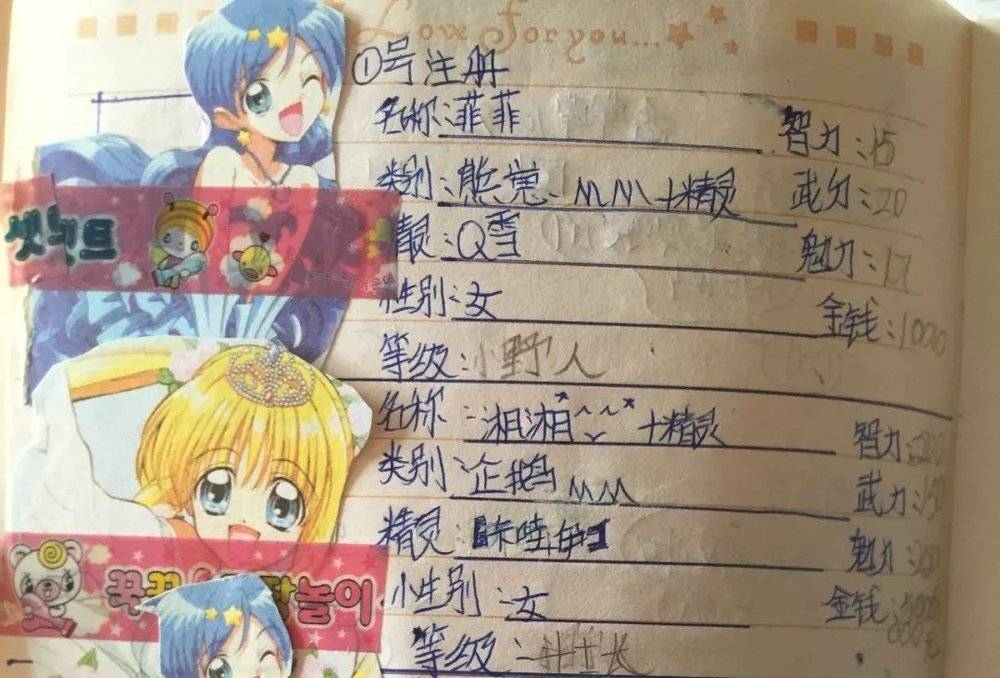 Love for you...
①号注册
名称:菲菲 智力:15
类别:熊觉 MM+精灵 武力:20
精灵:Q雪 魅力:17
性别:女 金钱:1000
等级:小野人
名称:湘湘 +精灵 智力:
类别:企鹅 MM 武力:150
精灵:咔哇伊 魅力:
小性别:女 金钱:
等级:村长
놀이